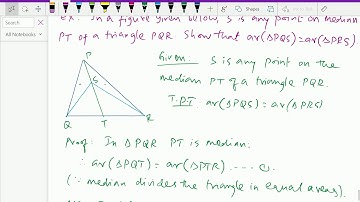 Search
All Notebooks
Ex. In a figure given below, S is any point on median
PT of a triangle PQR Show that ar(ΔPQS)=ar(ΔPRS).
P
S
Q
T
R
Given: S is any point on the
median PT of a triangle PQR.
T.P.T: ar(ΔPQS)=ar(ΔPRS)
Proof: In ΔPQR PT is median.
∴ ar(ΔPQT)=ar(ΔPTR)....
(∵ median divides the triangle in equal areas).